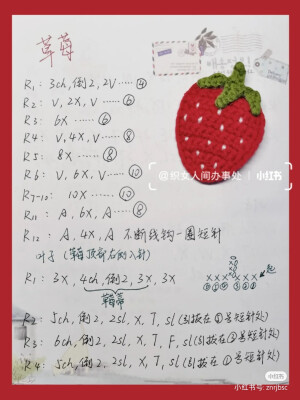 草莓
R1: 3ch, 倒2, 2V …… ④
R2: V, 2X, V …… ⑥
R3: 6X …… ⑥
R4: V, 4X, V …… ⑧
R5: 8X …… ⑧
R6: V, 6X, V …… ⑩
R7-10: 10X …… ⑩
R11: A, 6X, A …… ⑧
R12: A, 4X, A 不断线钩一圈短针
叶子 (草莓顶部右侧入针)
R1: 3X, 4ch, 倒2, 3X, 3X
草莓蒂
起
R2: 5ch, 倒2, 2sl, X, T, sl (引拔在⑤号短针处)
R3: 6ch, 倒2, 2sl, X, T, F, sl (引拔在③号短针处)
R4: 5ch, 倒2, 2sl, X, T, sl (引拔在①号短针处)
@织女人间办事处 小红书
小红书
小红书号: znrjbsc